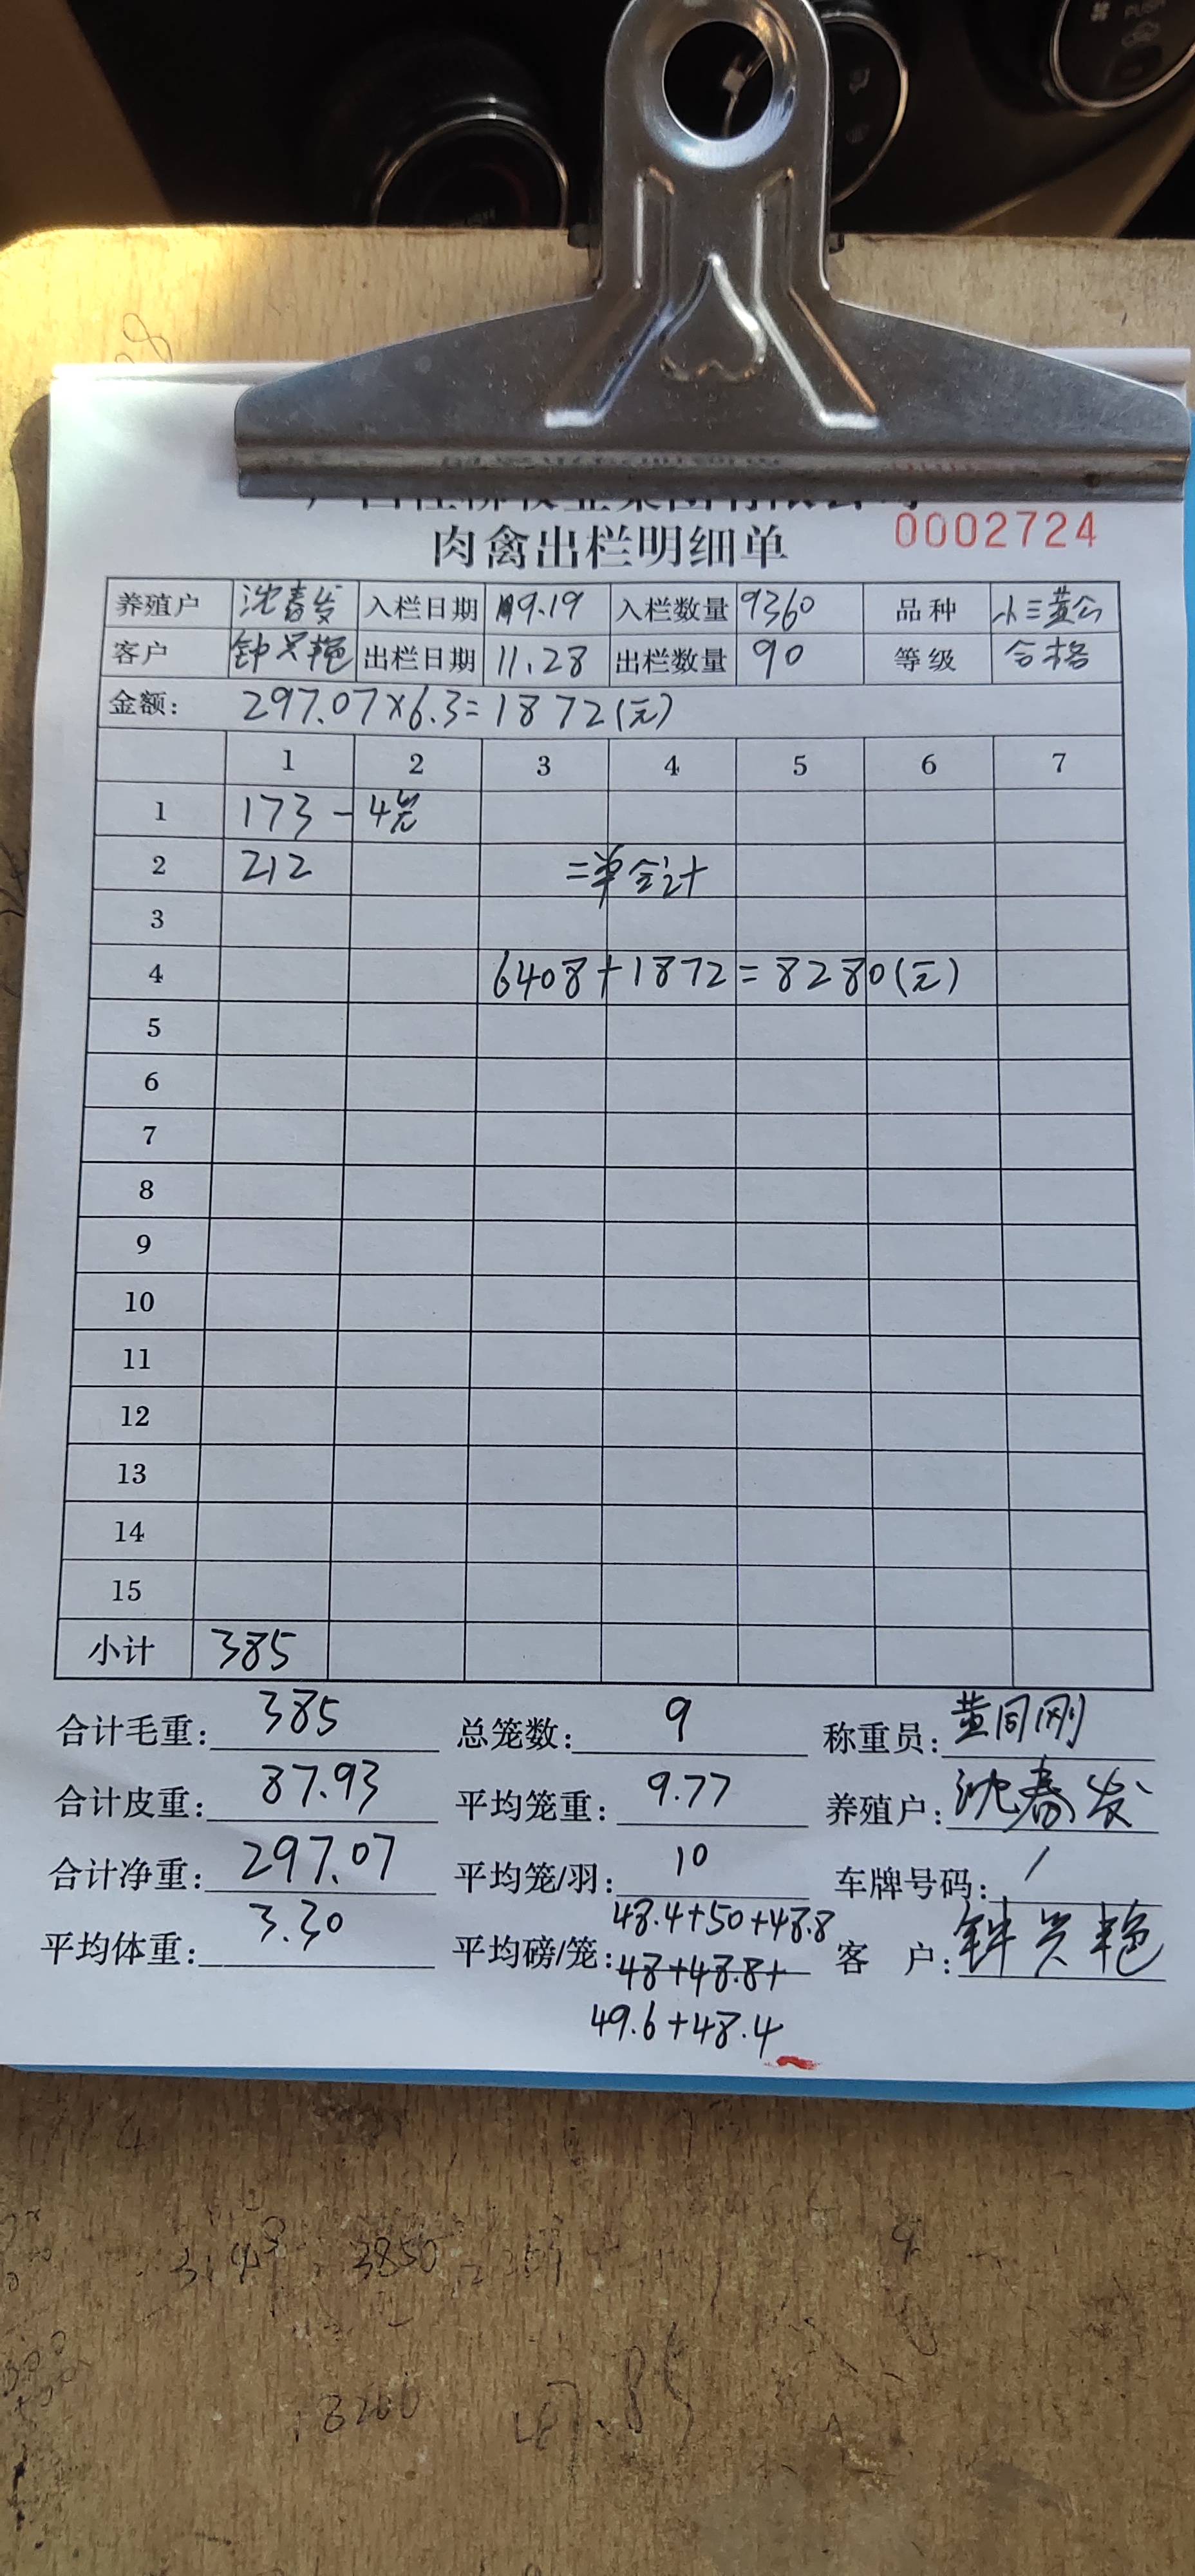 0002724
肉禽出栏明细单
养殖户 沈春发 入栏日期 9.19 入栏数量 9360 品种 小三黄公
客户 钟兴艳 出栏日期 11.28 出栏数量 90 等级 合格
金额: 297.07×6.3=1872(元)
1 2 3 4 5 6 7
1 173-4笼
2 212 二单合计
3
4 6408+1872=8280(元)
5
6
7
8
9
10
11
12
13
14
15
小计 385
合计毛重: 385 总笼数: 9 称重员: 黄同刚
合计皮重: 87.93 平均笼重: 9.77 养殖户: 沈春发
合计净重: 297.07 平均笼/羽: 10 车牌号码: /
平均体重: 3.30 平均磅/笼: 48.4+50+48.8 客 户: 钟兴艳
48+48.8+
49.6+48.4
3850
3200